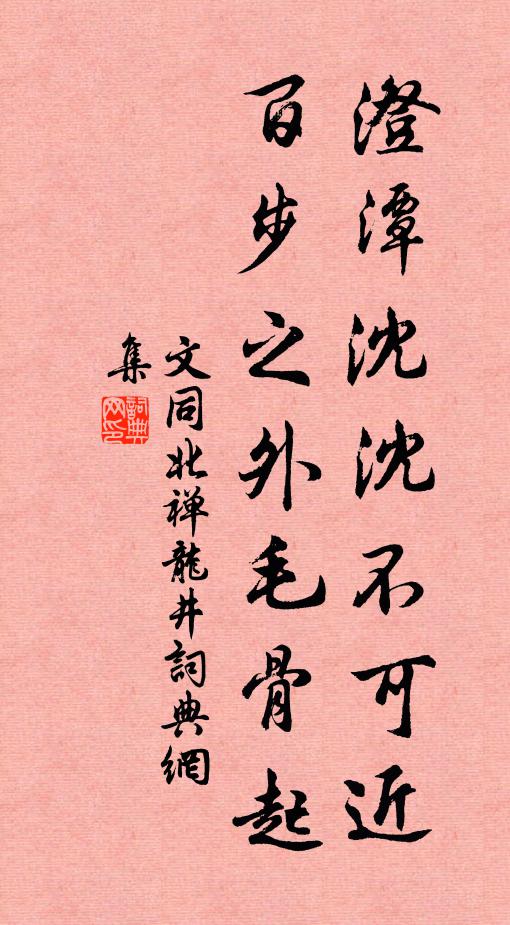 澄潭沈沈不可近
百步之外毛骨起
文同北禅龍井詞典網
集
詞典网印